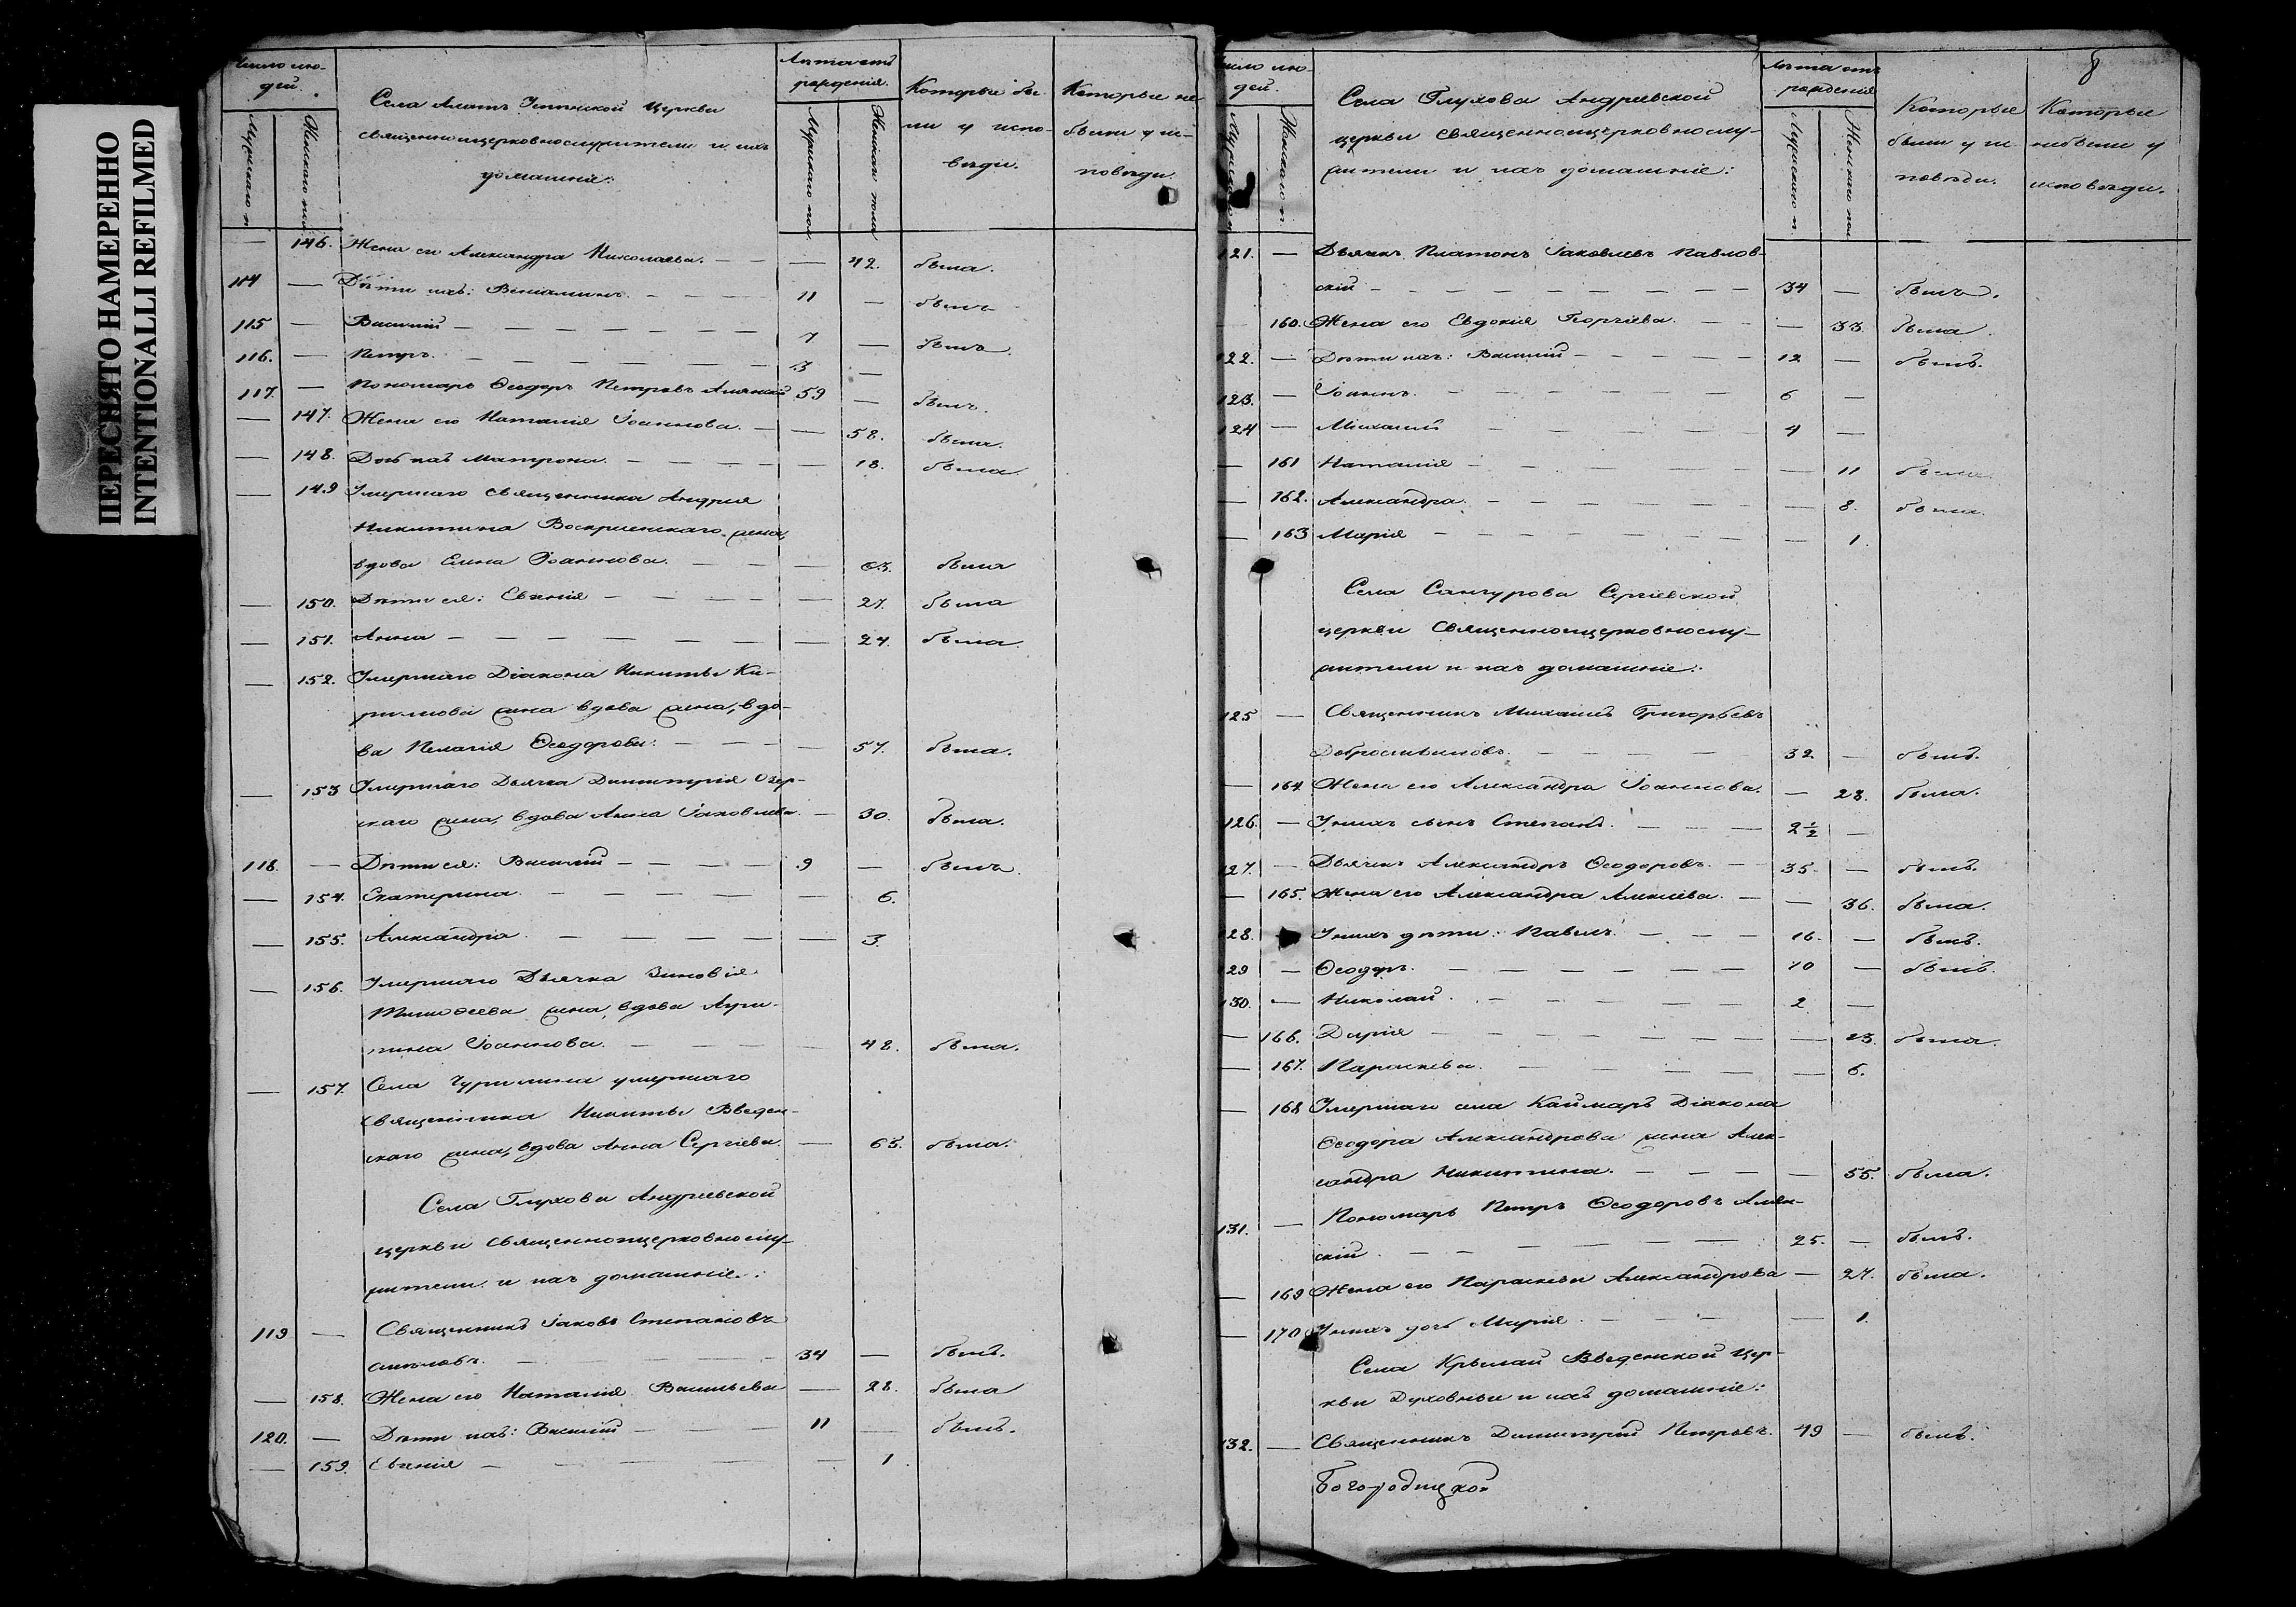 ПЕРЕСНЯТО НАМЕРЕННО
INTENTIONALLI REFILMED
Число лю-
дей.
Мужскаго п.
Женскаго пола
Села Алатъ церкви
священноицерковнослужители и ихъ
домашніе:
Лѣта отъ
рожденія.
Мужскаго пол.
Женскаго пола
Которые бы-
ли у испо-
вѣди.
Которые не
были у ис-
повѣди.
— 146. Жена его Александра Николаева. — — — 42. была.
114 — Дѣти ихъ: Веніаминъ. — — — 11 — былъ
115 — Василій — — — — — — 7 — былъ.
116. — Петръ. — — — — — — 3 —
117. — Пономарь Ѳеодоръ Петровъ 59 — былъ.
— 147. Жена его Наталія Іоаннова. — — 58. была.
— 148. Дочь ихъ Матрона. — — — — — 18. была
— 149 Умершаго священника Андрея
Никитина Воскресенскаго жена,
вдова Елена Іоаннова. — — — — 63. была
— 150. Дѣти ея: Евгенія — — — — — 27. была
— 151. Анна — — — — — — — 24. была.
— 152. Умершаго Діакона Никиты Ки-
рилова жена вдова жена, вдо-
ва Пелагія Ѳеодорова: — — — — 57. была.
— 153 Умершаго Дьячка Димитрія Озер-
скаго жена, вдова Анна Іаковлева. — 30. была.
118. — Дѣти ея: Василій — — — — 9 — былъ.
— 154. Екатерина. — — — — — — 6.
— 155. Александра. — — — — — — 3.
— 156. Умершаго Дьячка Зиновія
Тимоѳеева жена, вдова Агри-
пина Іоаннова. — — — — 48. была.
— 157. Села Чурилина умершаго
священника Никиты Введен-
скаго жена, вдова Анна Сергіева. — 63. была.
Села Глухова Андреевской
церкви священноицерковнослу-
жители и ихъ домашніе.:
119 — Священникъ Іаковъ Степановъ
— — — — 34 — былъ.
— 158. Жена его Наталія Васильева — 28. была
120. — Дѣти ихъ: Василій — — — 11 — былъ.
— 159. Евгенія — — — — — — 1
8
Число лю-
дей.
Мужскаго п.
Женскаго п.
Села Глухова Андреевской
церкви священноицерковнослу-
жители и ихъ домашніе:
Лѣта отъ
рожденія
Мужскаго п.
Женскаго пол.
Которые
были у ис-
повѣди.
Которые
небыли у
исповѣди.
121. — Дьячкъ Платонъ Іаковлевъ Павлов-
скій — — — — — — — — 34 — былъ.
160. Жена его Евдокія Георгіева. — — 33. была.
122. — Дѣти ихъ: Василій — — — — 12 — былъ.
123. — Іоаннъ. — — — — — — 6 —
124 — Михаилъ — — — — 4 —
— 161 Наталія — — — — — — — 11 была.
— 162. Александра. — — — — — — 8. была.
— 163 Марія — — — — — — — — 1.
Села Сангурова Сергіевской
церкви священноицерковнослу-
жители и ихъ домашніе:
125 — Священникъ Михаилъ Григорьевъ
Добросмысловъ. — — — — 32. — былъ.
— 164. Жена его Александра Іоаннова. — 28. была.
126. — У нихъ сынъ Степанъ. — — — 2½ —
127. — Дьячкъ Александръ Ѳеодоровъ. — 35. — былъ.
— 165. Жена его Александра Алексіева. — — 36. была.
128. — У нихъ дѣти: Павелъ. — — — 16. — былъ.
129 — Ѳеодоръ. — — — — — — 10 — былъ.
130. — Николай. — — — — — 2 —
— 166. Дарія — — — — — — — — 23. была.
— 167. Параскева. — — — — — — 6.
— 168 Умершаго села Каймаръ Діакона
Ѳеодора Александрова жена Алек-
сандра Никитина. — — — — 55. была.
131. — Пономарь Петръ Ѳеодоровъ
скій. — — — — — 25. — былъ.
— 169 Жена его Параскева Александрова — 27. была.
— 170 У нихъ дочь Марія. — — — — 1.
Села Крылай Введенской цер-
кви Духовные и ихъ домашніе:
132. — Священникъ Димитрій Петровъ. 49 — былъ.
Богородицкой